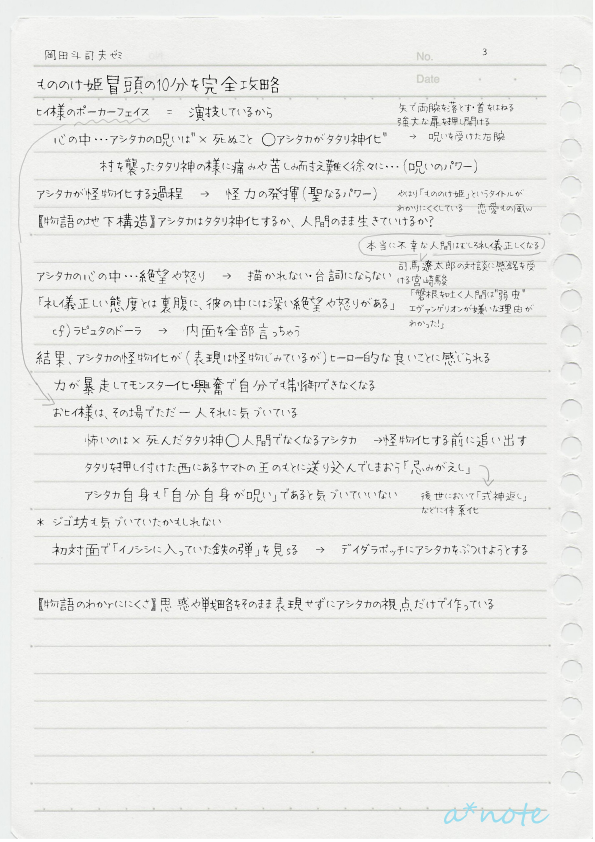 岡田斗司夫ゼミ
No. 3
Date
もののけ姫冒頭の10分を完全攻略
ヒイ様のポーカーフェイス = 演技しているから
矢で両腕を落とす・首をはねる
強大な扉を押し開ける
→ 呪いを受けた右腕
心の中…アシタカの呪いは"×死ぬこと ○アシタカがタタリ神化"
村を襲ったタタリ神の様に痛みや苦しみ耐え難く徐々に…(呪いのパワー)
アシタカが怪物化する過程 → 怪力の発揮(聖なるパワー)
やはり「もののけ姫」というタイトルが
わかりにくくしている 恋愛もの風w
『物語の地下構造』アシタカはタタリ神化するか、人間のまま生きていけるか?
本当に不幸な人間はむしろ礼儀正しくなる
アシタカの心の中…絶望や怒り → 描かれない・台詞にならない
司馬遼太郎の対談に感銘を受
ける宮崎駿
「礼儀正しい態度とは裏腹に、彼の中には深い絶望や怒りがある」
「管根を吐く人間は"弱虫"
エヴァンゲリオンが嫌いな理由が
わかった!」
cf)ラピュタのドーラ → 内面を全部言っちゃう
結果、アシタカの怪物化が(表現は怪物じみているが)ヒーロー的な良いことに感じられる
力が暴走してモンスター化・興奮で自分でも制御できなくなる
おヒイ様は、その場でただ一人それに気づいている
怖いのは×死んだタタリ神○人間でなくなるアシタカ →怪物化する前に追い出す
タタリを押し付けた西にあるヤマトの王のもとに送り込んでしまおう「忌みがえし」
アシタカ自身も「自分自身が呪い」であると気づいていいない
後世において「式神返し」
などに体系化
* ジゴ坊も気づいていたかもしれない
初対面で「イノシシに入っていた鉄の弾」を見る → デイダラボッチにアシタカをぶつけようとする
『物語のわかりににくさ』思惑や戦略をそのまま表現せずにアシタカの視点だけで作っている
a*note